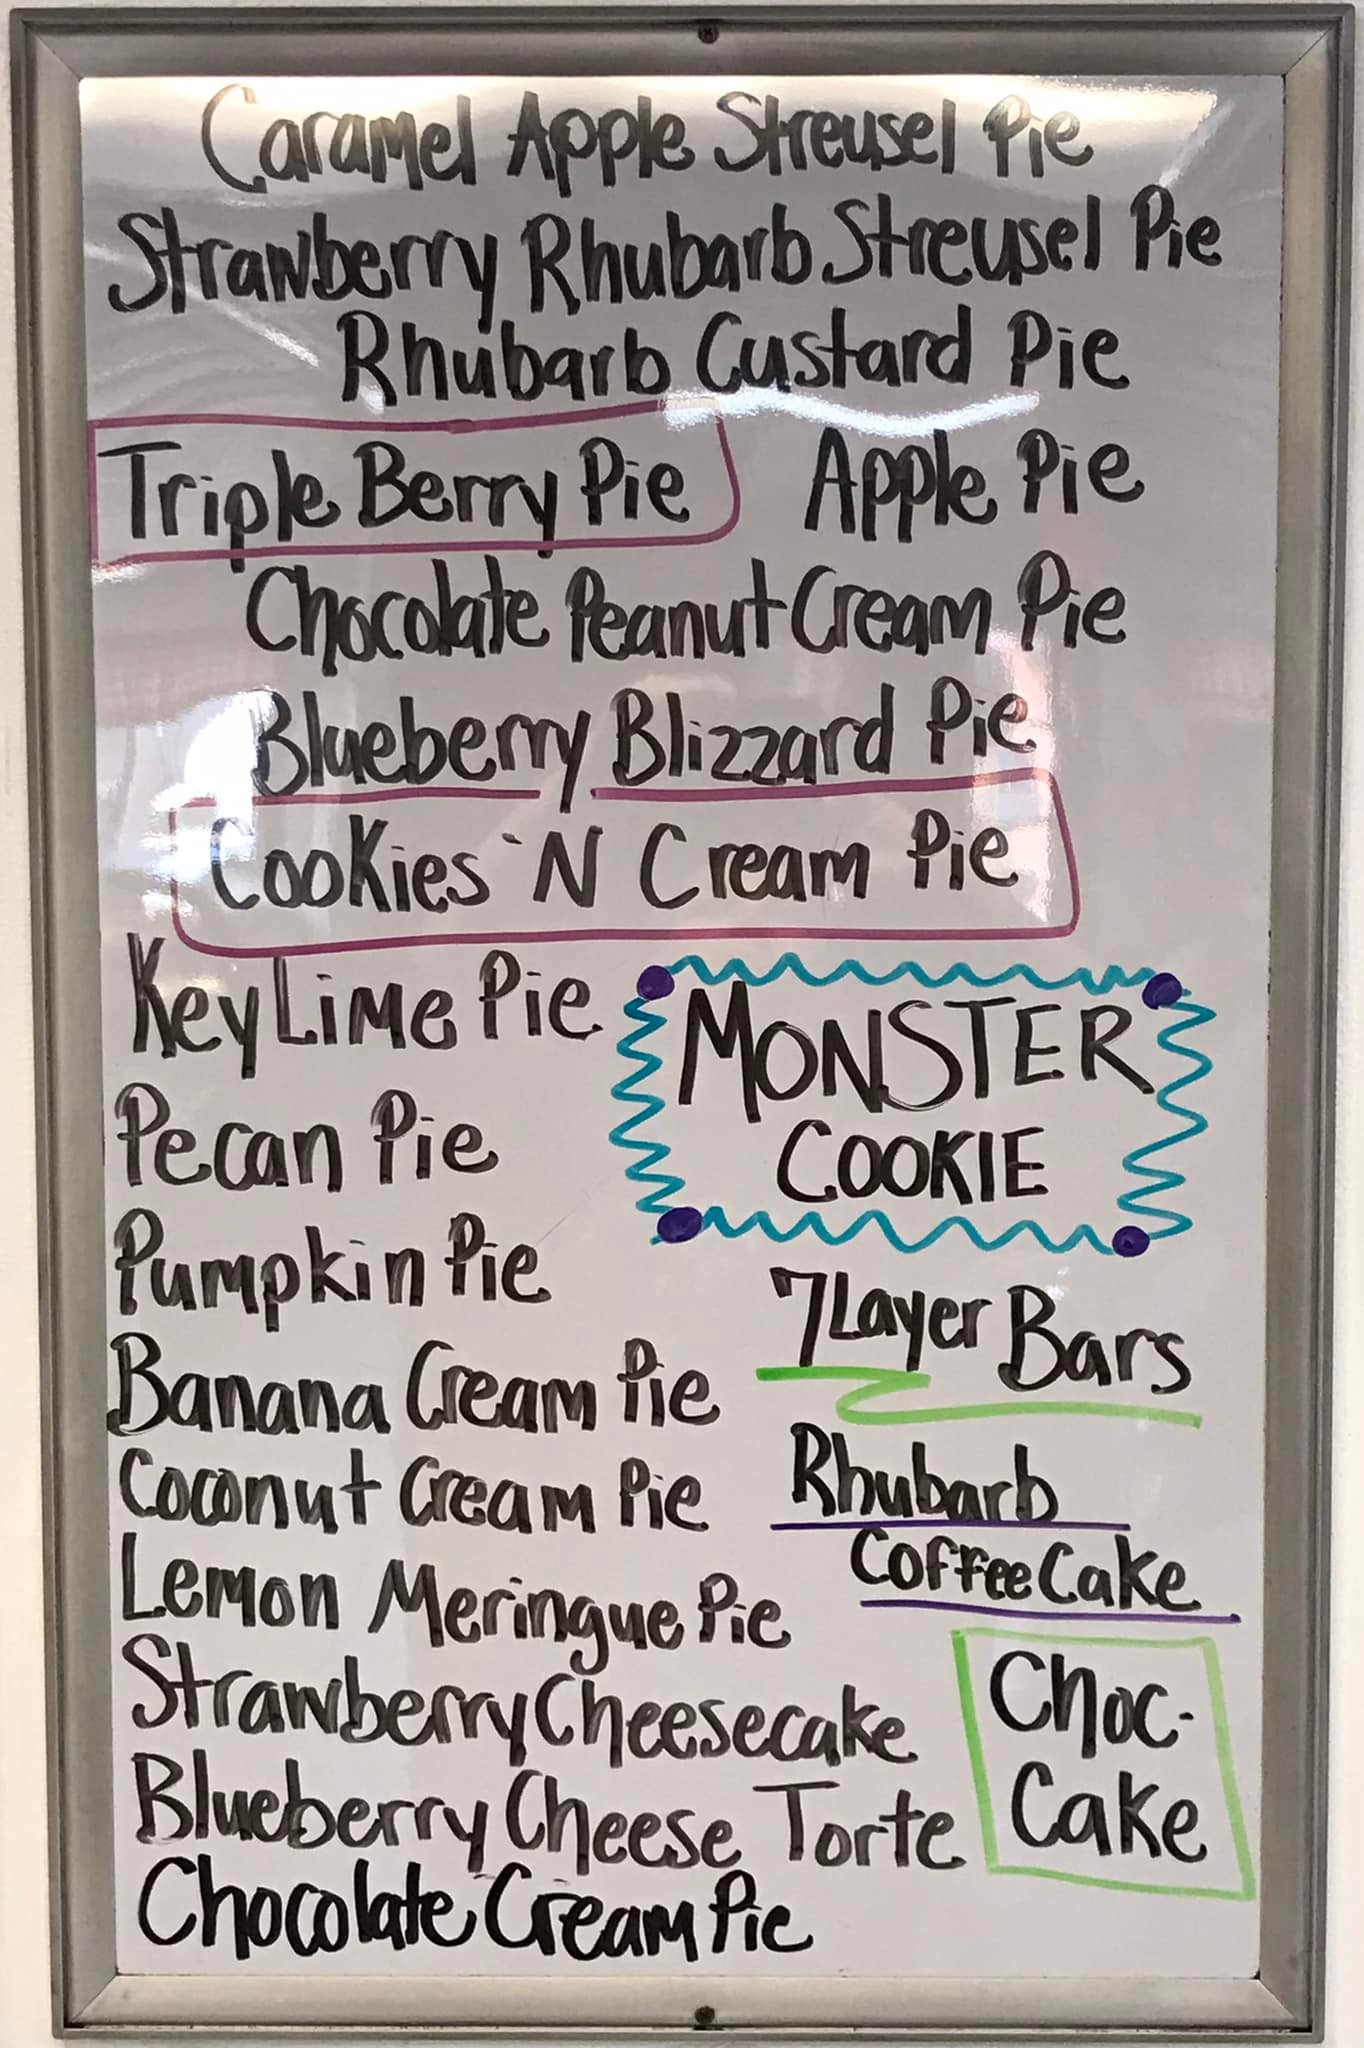 Caramel Apple Streusel Pie
Strawberry Rhubarb Streusel Pie
Rhubarb Custard Pie
Triple Berry Pie
Apple Pie
Chocolate Peanut Cream Pie
Blueberry Blizzard Pie
Cookies 'N Cream Pie
Key Lime Pie
Pecan Pie
Pumpkin Pie
Banana Cream Pie
Coconut Cream Pie
Lemon Meringue Pie
Strawberry Cheesecake
Blueberry Cheese Torte
Chocolate Cream Pie
MONSTER
COOKIE
7 Layer Bars
Rhubarb
Coffee Cake
Choc-
Cake